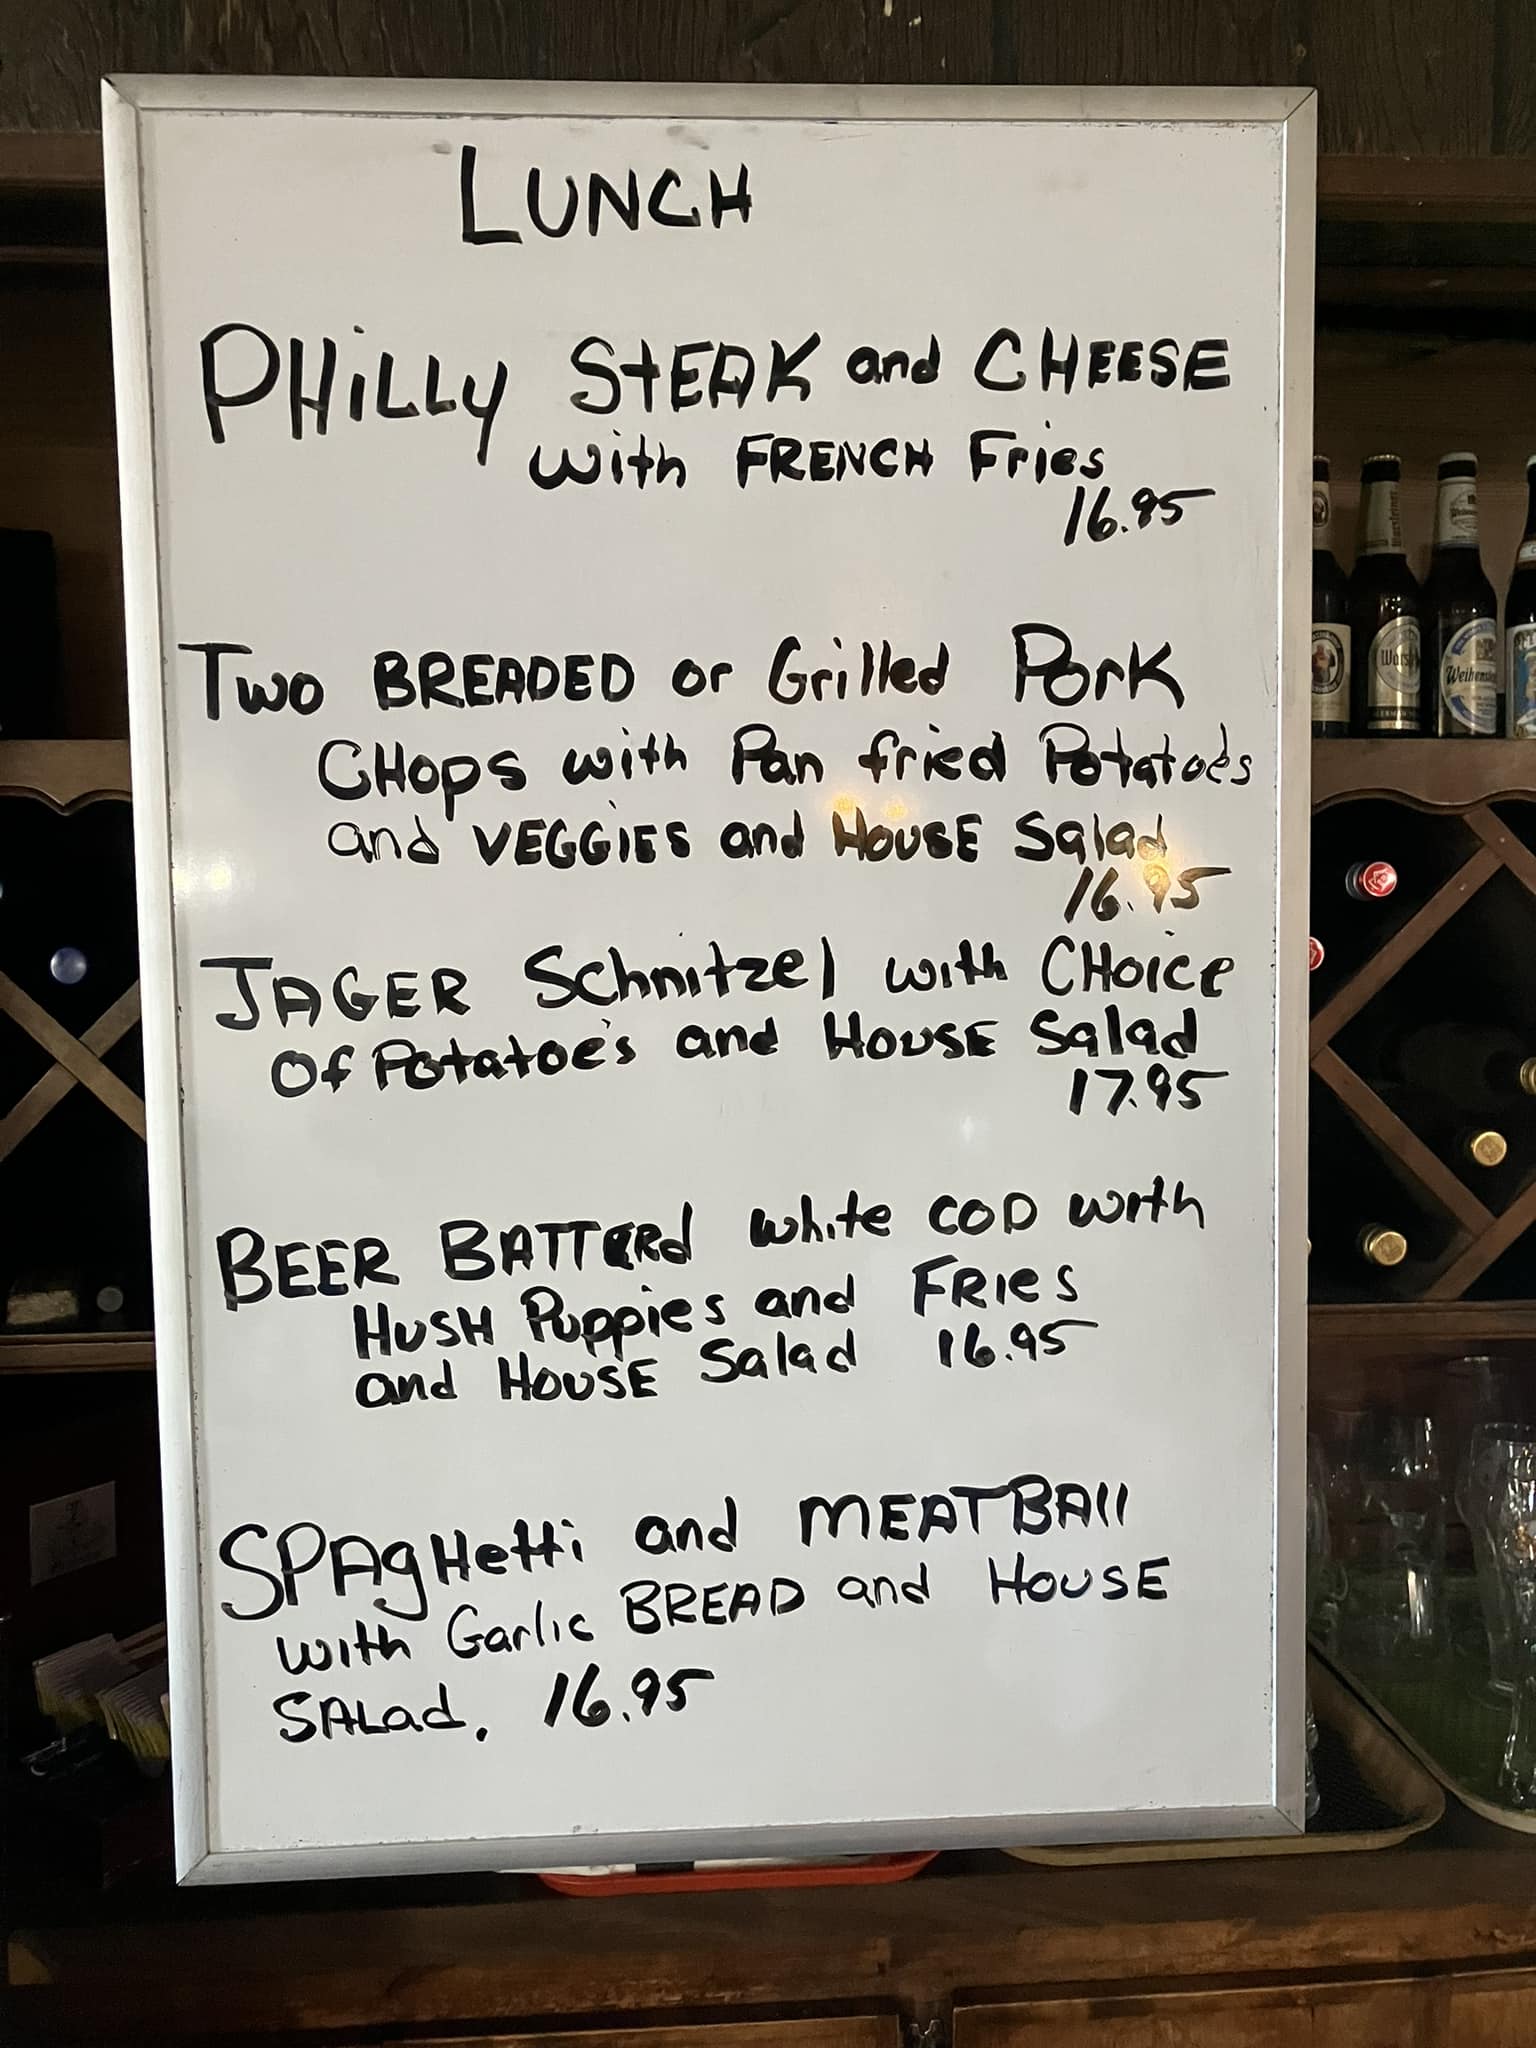 LUNCH
PHiLLY STEAK and CHEESE
with FRENCH Fries
16.95
Two BREADED or Grilled Pork
CHOPS with Pan fried Potatoes
and VEGGIES and HOUSE Salad
16.95
JAGER Schnitzel with CHOICE
Of Potatoe's and HOUSE Salad
17.95
BEER BATTERd white COD with
HUSH Puppies and FRIES
and HOUSE Salad 16.95
SPAgHetti and MEATBAll
with Garlic BREAD and HOUSE
SALad. 16.95